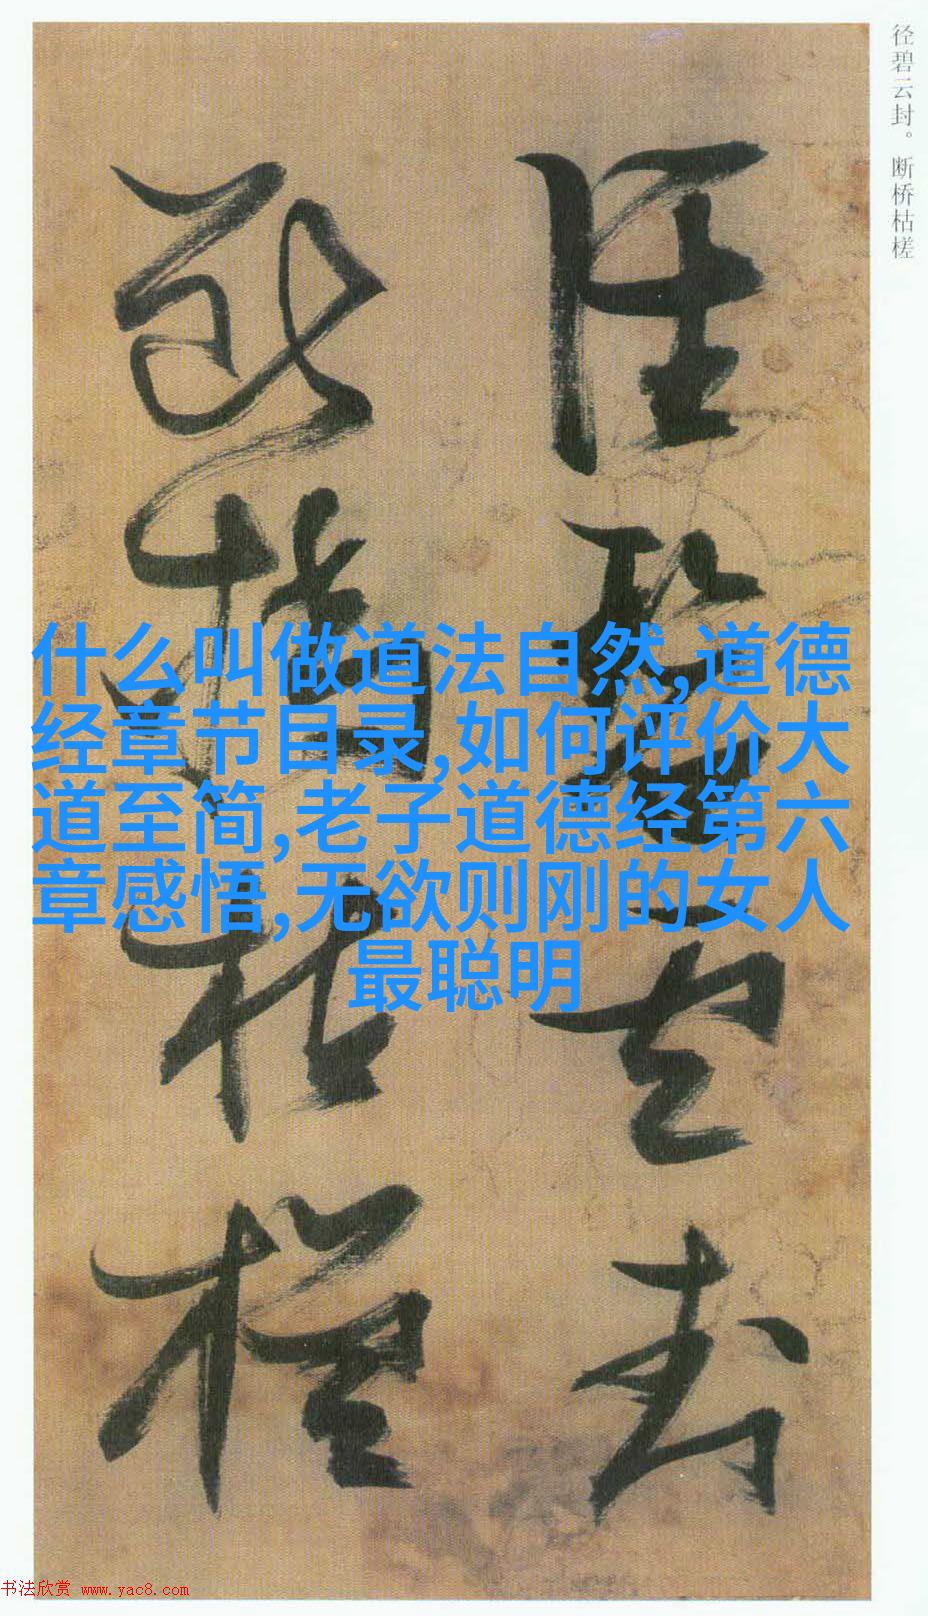 径碧云封。断桥枯槎
径碧云封
断桥枯槎
什么叫做道法自然,道德
经章节目录,如何评价大
道至简,老子道德经第六
章感悟,无欲则刚的女人
最聪明
书法欣赏 www.yac8.com